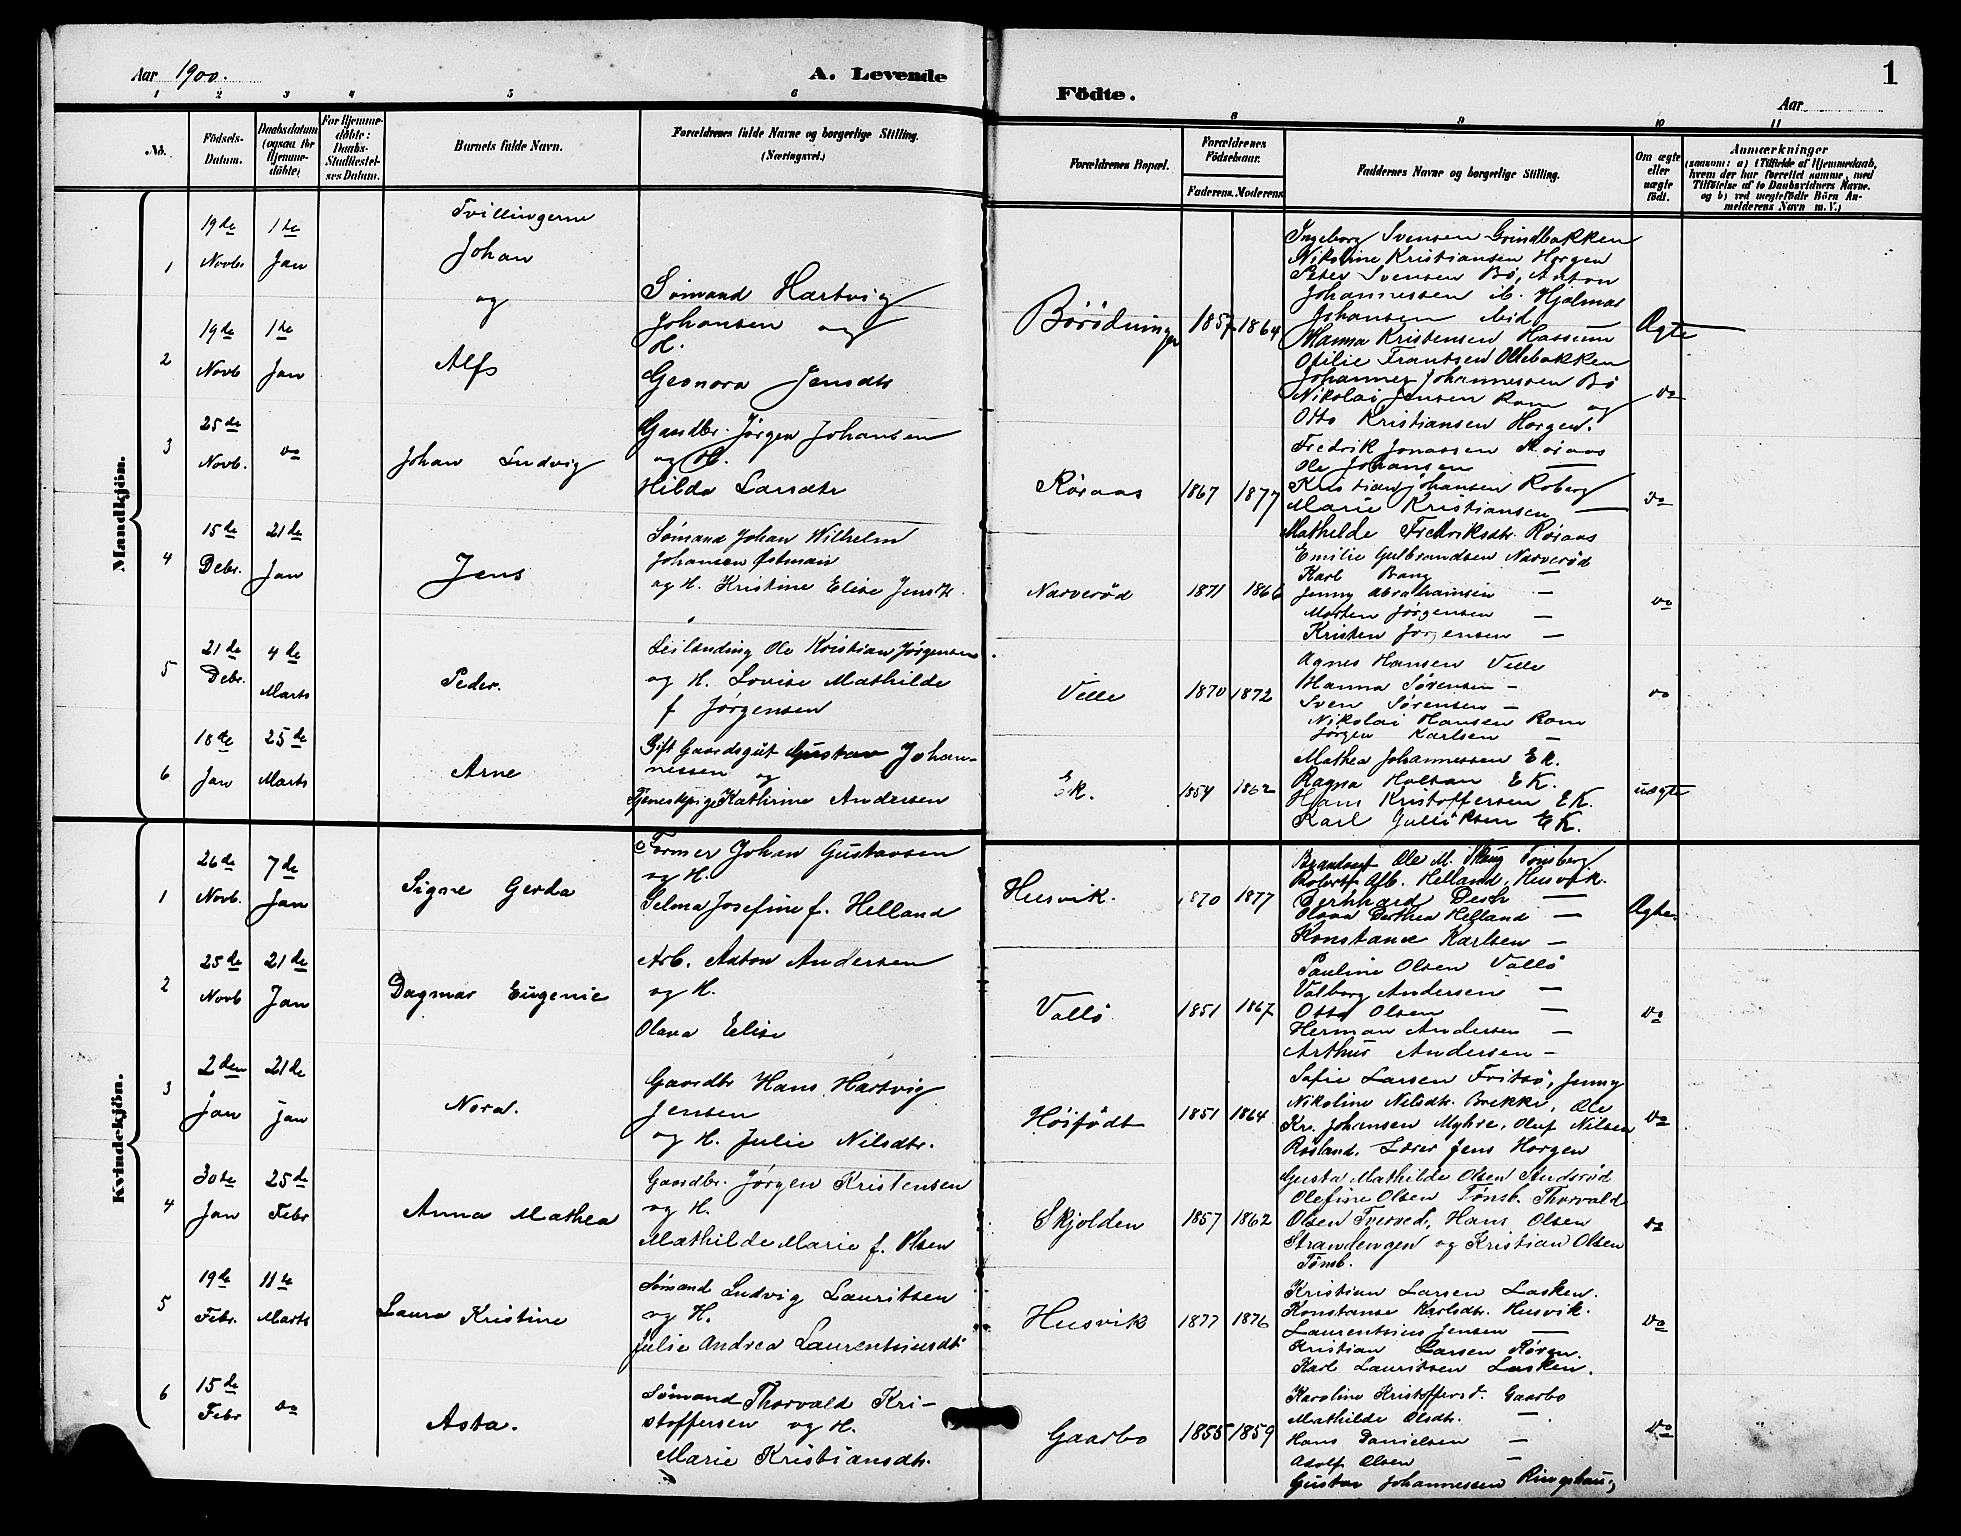 Aar 1900.
A. Levende
Födte.
Aar
1
1 2 3 4 5 6 8 9 10 11
No.
Födsels-
Datum.
Daabsdatum
(ogsaa for
Hjemme-
döbte)
For Hjemme-
döbte:
Daabs-
Stadfæstel-
ses Datum.
Barnets fulde Navn.
Forældrenes fulde Navne og borgerlige Stilling.
(Næringsvei.)
Forældrenes Bopæl.
Forældrenes
Födselsaar.
Faderens. Moderens
Faddernes Navne og borgerlige Stilling.
Om ægte
eller
uægte
födt.
Anmærkninger
(saasom: a) i Tilfælde af Hjemmedaab,
hvem der har forrettet samme, med
Tilföielse af to Daabsvidners Navne.
og b) ved uægtefödte Börn An-
melderens Navn m. V.)
Mandkjön.
1
19de
Novbr.
1ste
Jan
Tvillingerne
Johan
og
2
19de
Novb
1ste
Jan
Alf
Sömand Hartvig
Johansen og
H.
Jensdtr
1857 1864
Ingeborg Svensen Grindbakken
Nikoline Kristiansen Horgen
Peter Svensen Bö, Anton
Johannessen ib. Hjalmar
Johansen ibid
Hanna Kristensen Hassum
Otilie Frantsen Ollebakken
Johannes Johannessen Bö
Nikolai Jensen Ram og
Otto Kristiansen Horgen.
Ægte
do
3
25de
Novb.
do
Johan Ludvig
Gaardbr. Jørgen Johansen
og H.
Hilda Larsdtr
Røraas
1867 1877
Fredrik Jonassen Røraas
Ole Johansen —
Kristian Johansen Roberg
Marie Kristiansen —
Mathilde Fredriksdtr. Røraas
do
4
15de
Debr.
21de
Jan
Jens
Sømand Johan Wilhelm
Johansen Østman
og H. Kristine Elise Jensdtr.
Narverød
1871 1866
Emilie Gulbrandsen Narverød
Karl Bang —
Jenny Abrahamsen —
Morten Jørgensen —
Kristen Jørgensen —
do
5
21de
Debr.
4de
Marts
Peder.
Leilænding Ole Kristian Jørgensen
og H. Lovise Mathilde
f Jørgensen
Velle
1870 1872
Agnes Hansen Velle
Hanna Sørensen —
Sven Sørensen —
Nikolai Hansen Ram
Jørgen Karlsen —
do
6
18de
Jan
25de
Marts
Arne
Gift Gaardsgut Gustav Johan-
nessen og
Tjenestepige Kathrine Andersen
Ek.
1854 1862
Mathea Johannessen Ek.
Ragna Holtan EK.
Hans Kristoffersen EK.
Karl Julliksen EK.
uægte
Kvindekjön.
1
26de
Novb.
7de
Jan
Signe Gerda
Former Johan Gustavsen
og H.
Selma Josefine f. Helland
Husvik.
1870 1877
Ole M. Tönsberg
Robert Alb. Helland, Husvik.
Bernhard Desch —
Olava Dorthea Helland —
Konstance Karlsen —
Ægte.
2
25de
Novb
21de
Jan
Dagmar Eugenie
Arb. Anton Andersen
og H.
Olava Elise
Vallö
1851 1867
Pauline Olsen Vallö
Valborg Andersen —
Otto Olsen —
Herman Andersen —
Arthur Andersen —
do
3
2den
Jan
21de
Jan
Nora.
Gaardbr Hans Hartvig
Jensen
og H. Julie Nilsdtr.
Höifödt
1851 1864
Sofie Larsen Fritsö, Jenny
Nikoline Nilsdtr. Brekke, Ole
Kr. Johansen Myhre, Oluf Nilsen
Røsland, Lærer Jens Horgen
do
4
30te
Jan
25de
Febr
Anna Mathea
Gaardbr. Jørgen Kristensen
og H.
Mathilde Marie f. Olsen
Skjolden
1857 1862
Gusta Mathilde Olsen
Olefine Olsen Tønsb. Thorvald
Olsen Tverved, Hans Olsen
Strandengen og Kristian Olsen
Tønsb.
do
5
19de
Febr.
11te
Marts
Laura Kristine
Sømand Ludvig Lauritsen
og H.
Julie Andrea Laurentiusdtr
Husvik
1877 1876
Kristian Larsen Lasken.
Konstanse Karlsdtr. Husvik.
Laurentsius Jensen —
Kristian Larsen Røren.
Karl Lauritsen Lasken.
do
6
15de
Febr
do
Asta.
Sømand Thorvald Kri-
stoffersen og H.
Marie Kristiansdtr.
Gaarbo
1855 1859
Karoline Kristoffersd. Gaarbo
Mathilde Olsdtr. —
Hans Danielsen —
Adolf Olsen —
Gustav Johannessen Ringshaug
do